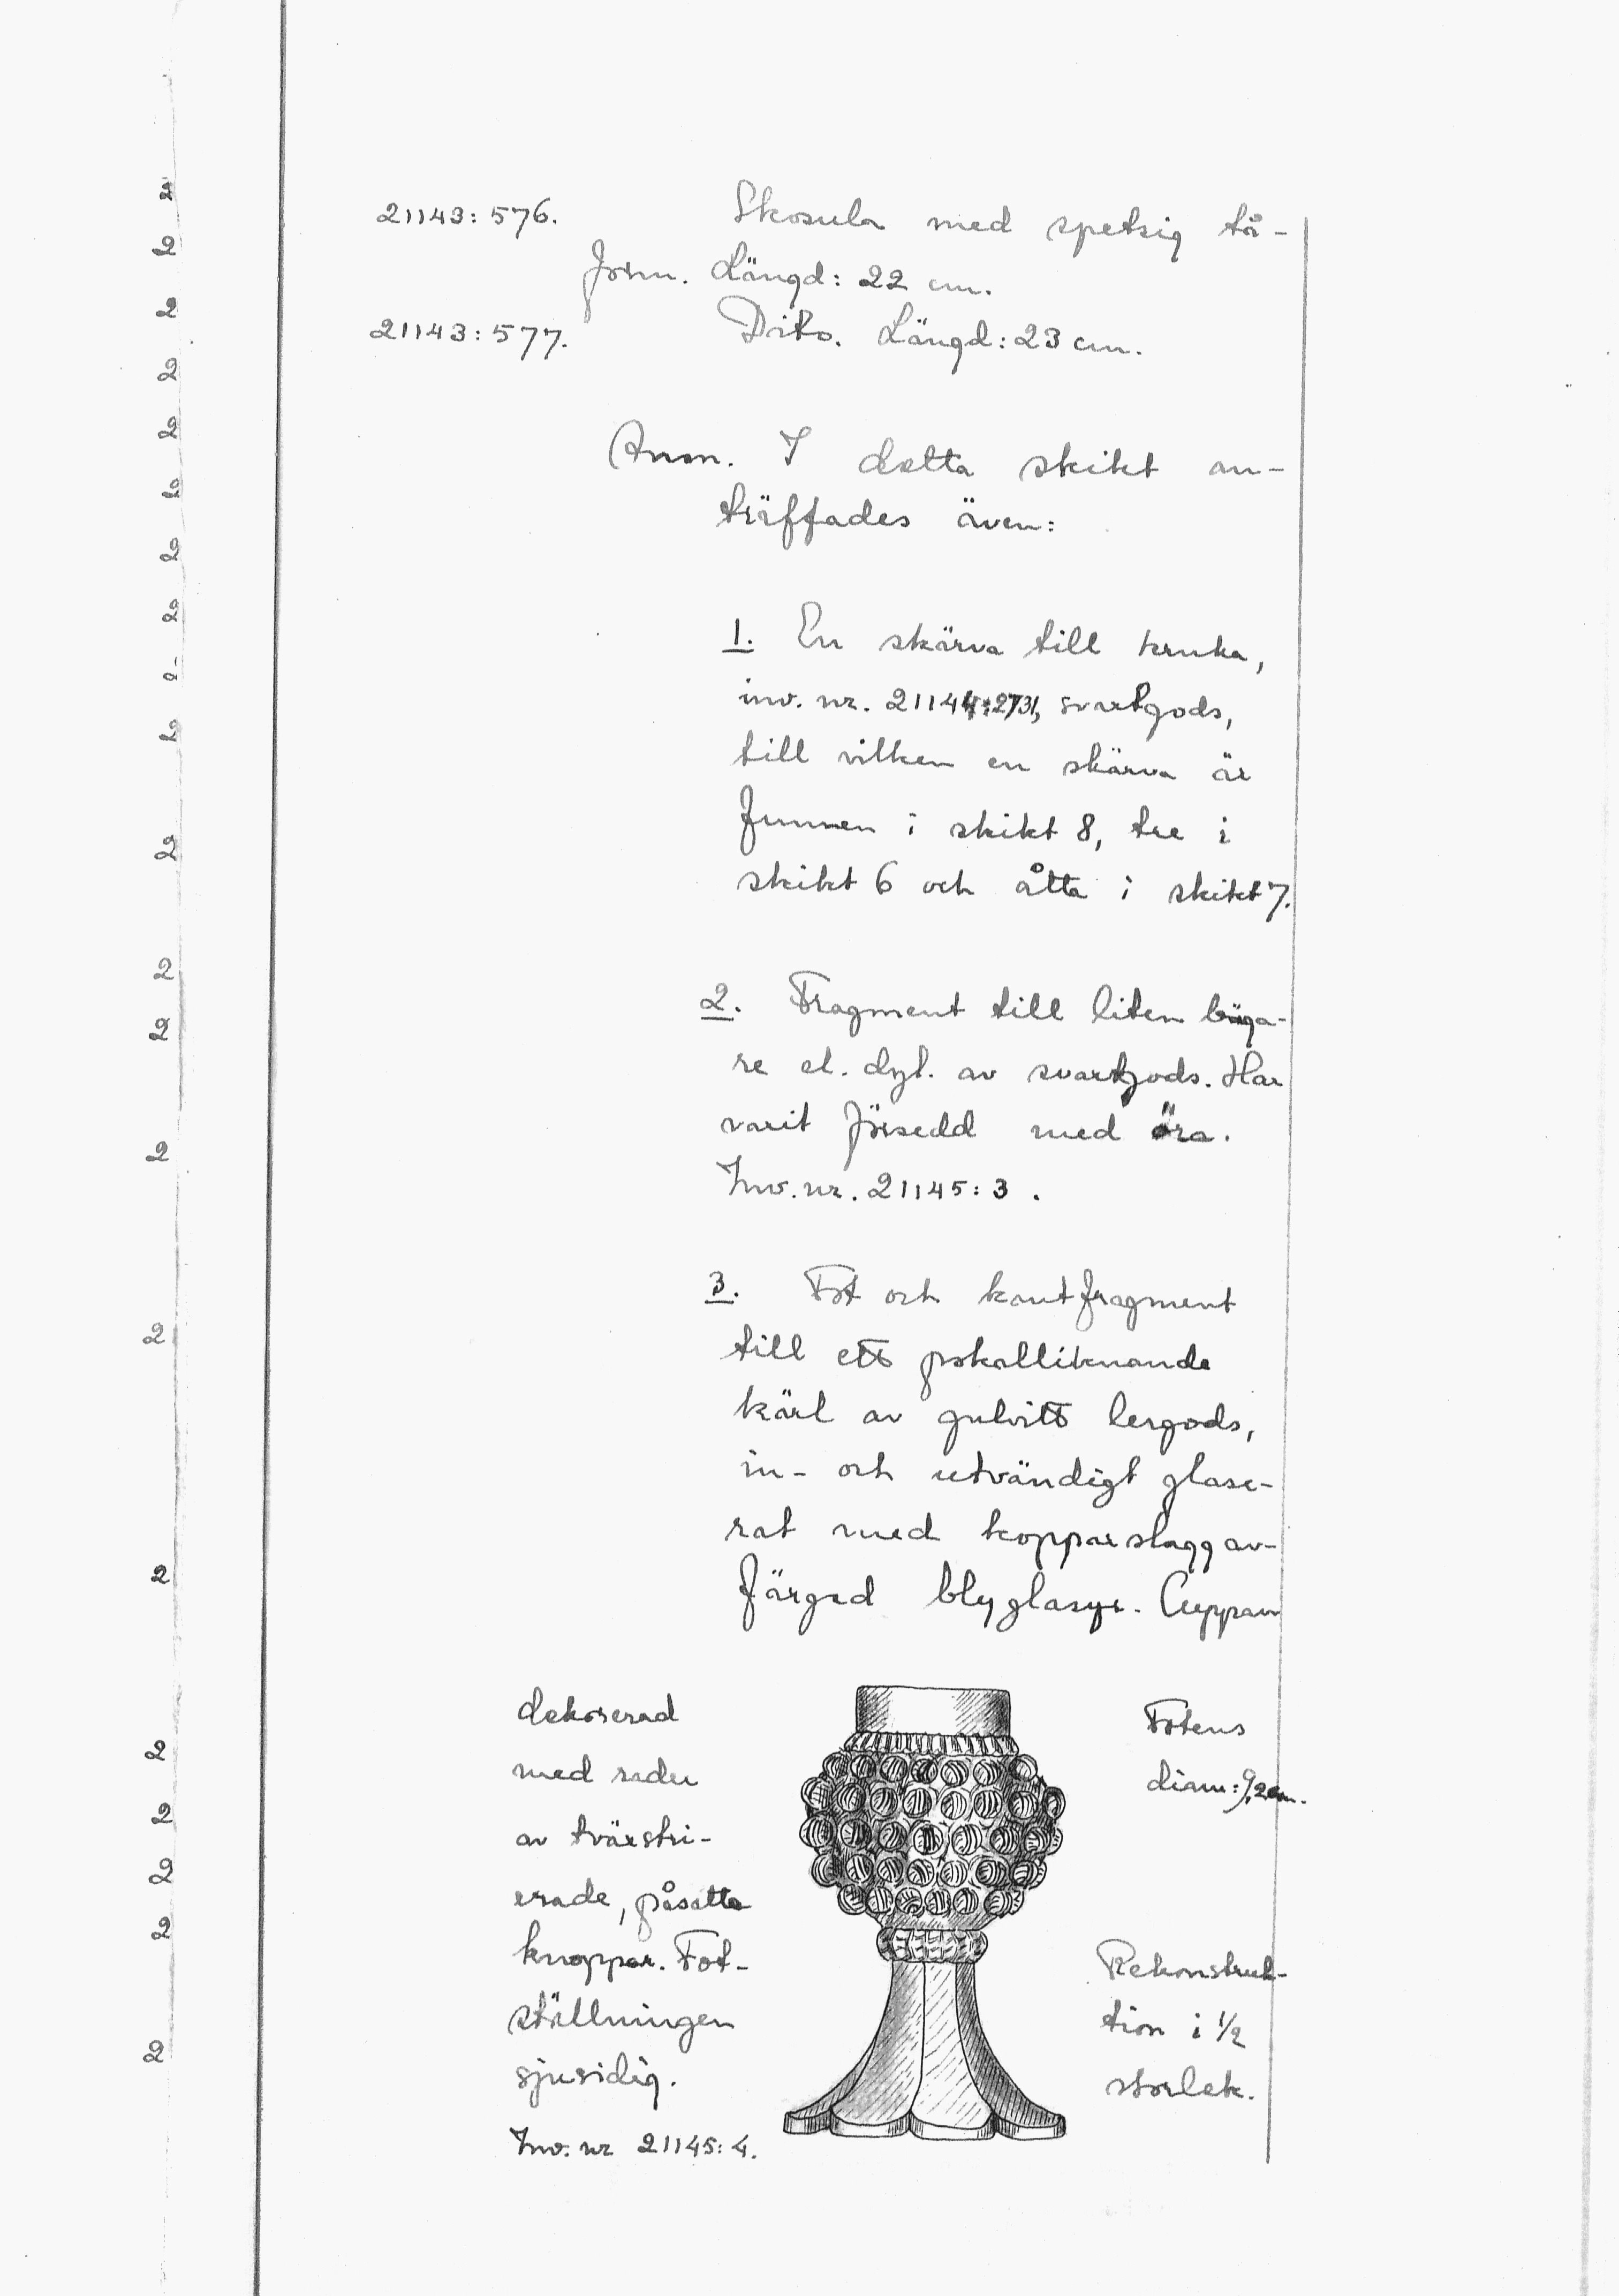 21143: 576. Skosula med spetsig tå-
form. Längd: 22 cm.
21143: 577. Dito. Längd: 23 cm.
Anm. I detta skikt an-
träffades även:
1. En skärva till kruka,
inv. nr. 21144:2731, svartgods,
till vilken en skärva är
funnen i skikt 8, tre i
skikt 6 och åtta i skikt 7.
2. Fragment till liten bäga-
re el. dyl. av svartgods. Har
varit försedd med öra.
Inv. nr. 21145: 3 .
3. Fot och kantfragment
till ett pokalliknande
kärl av gulvitt lergods,
in- och utvändigt glase-
rat med kopparslaggav-
färgad blyglasyr. Cuppan
dekorerad
med rader
av tvärstri-
erade, påsatta
knoppar. Fot-
ställningen
sjusidig.
Inv. nr 21145: 4.
Fotens
diam: 9,2 cm.
Rekonstruk-
tion i 1/2
storlek.
2
2
2
2
2
2
2
2
2
2
2
2
2
2
2
2
2
2
2
2